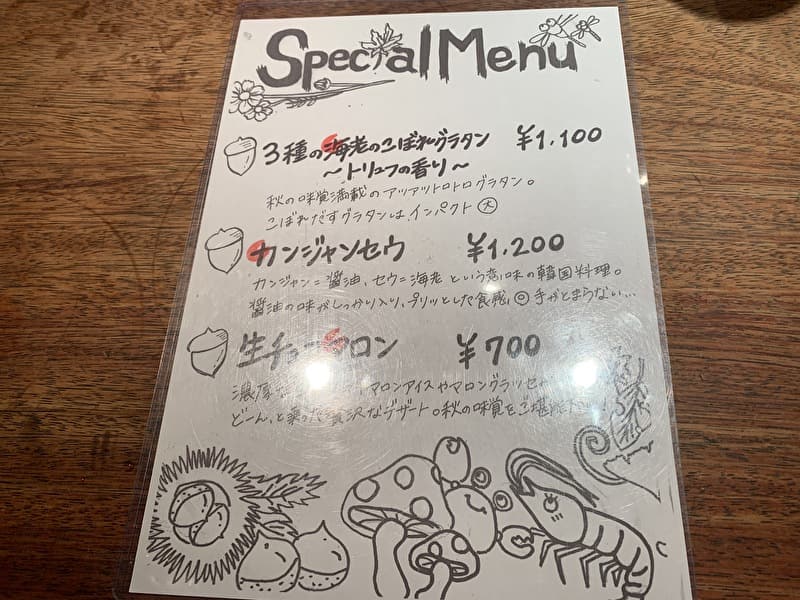 Special Menu
3種の海老のこぼれグラタン ¥1,100
~トリュフの香り~
秋の味覚満載のアツアツトロトログラタン。
こぼれだすグラタンはインパクト大
カンジャンセウ ¥1,200
カンジャン=醤油、セウ=海老という意味の韓国料理。
醤油の味がしっかり入り、プリッとした食感◎手がとまらない…
生チョコマロン ¥700
濃厚 マロンアイスやマロングラッセ
どーん、と乗った贅沢なデザート。秋の味覚をご堪能 !